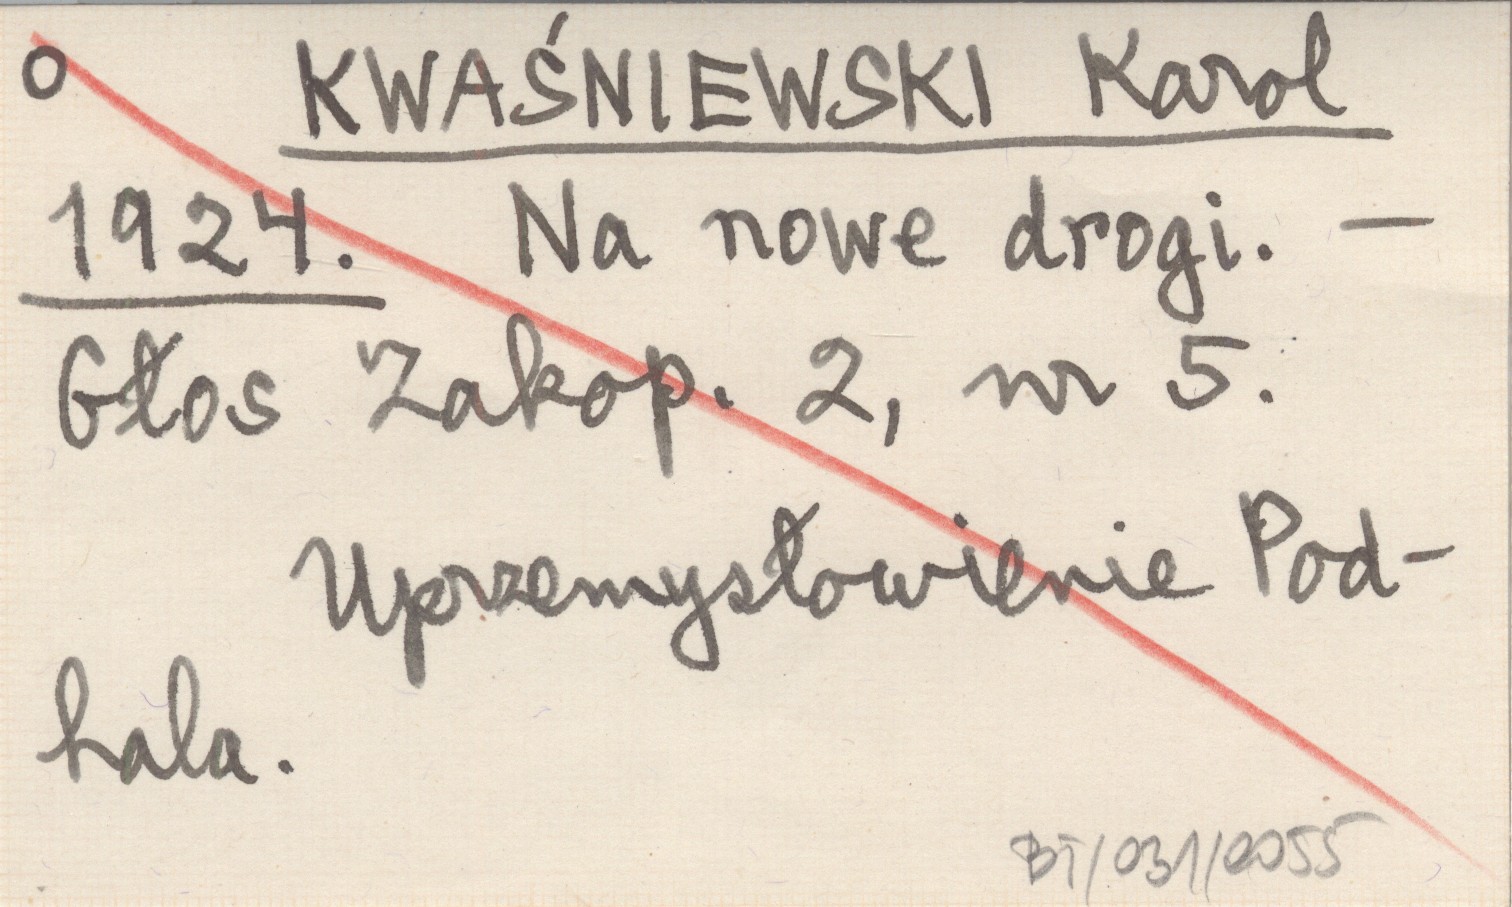 o KWAŚNIEWSKI Karol
1924. Na nowe drogi. —
Głos Zakop. 2, nr 5.
Uprzemysłowienie Pod-
hala.
BT/031/0055